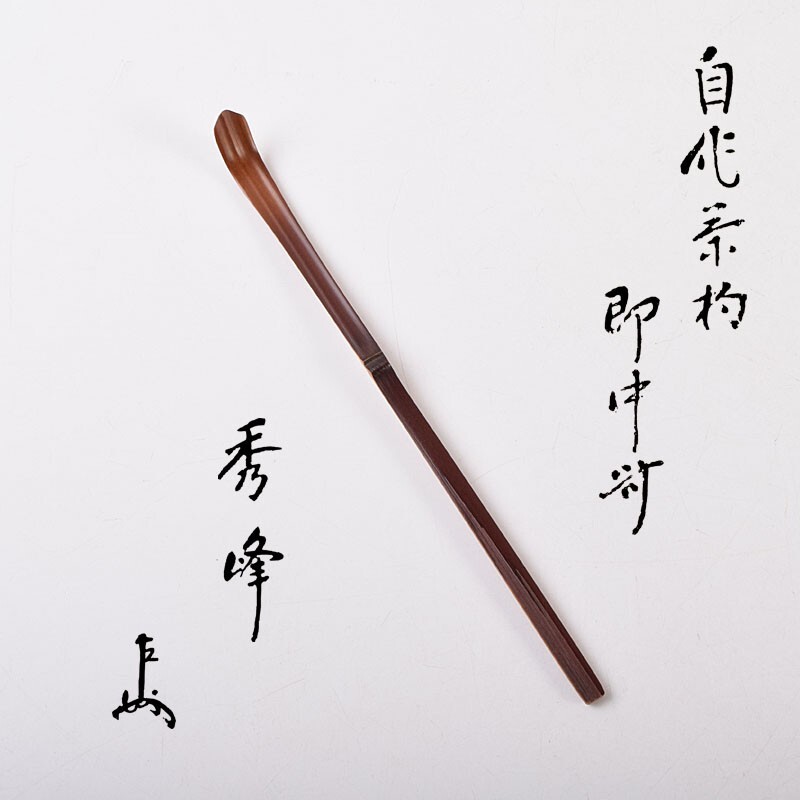 自作茶杓
即中斎
秀峰